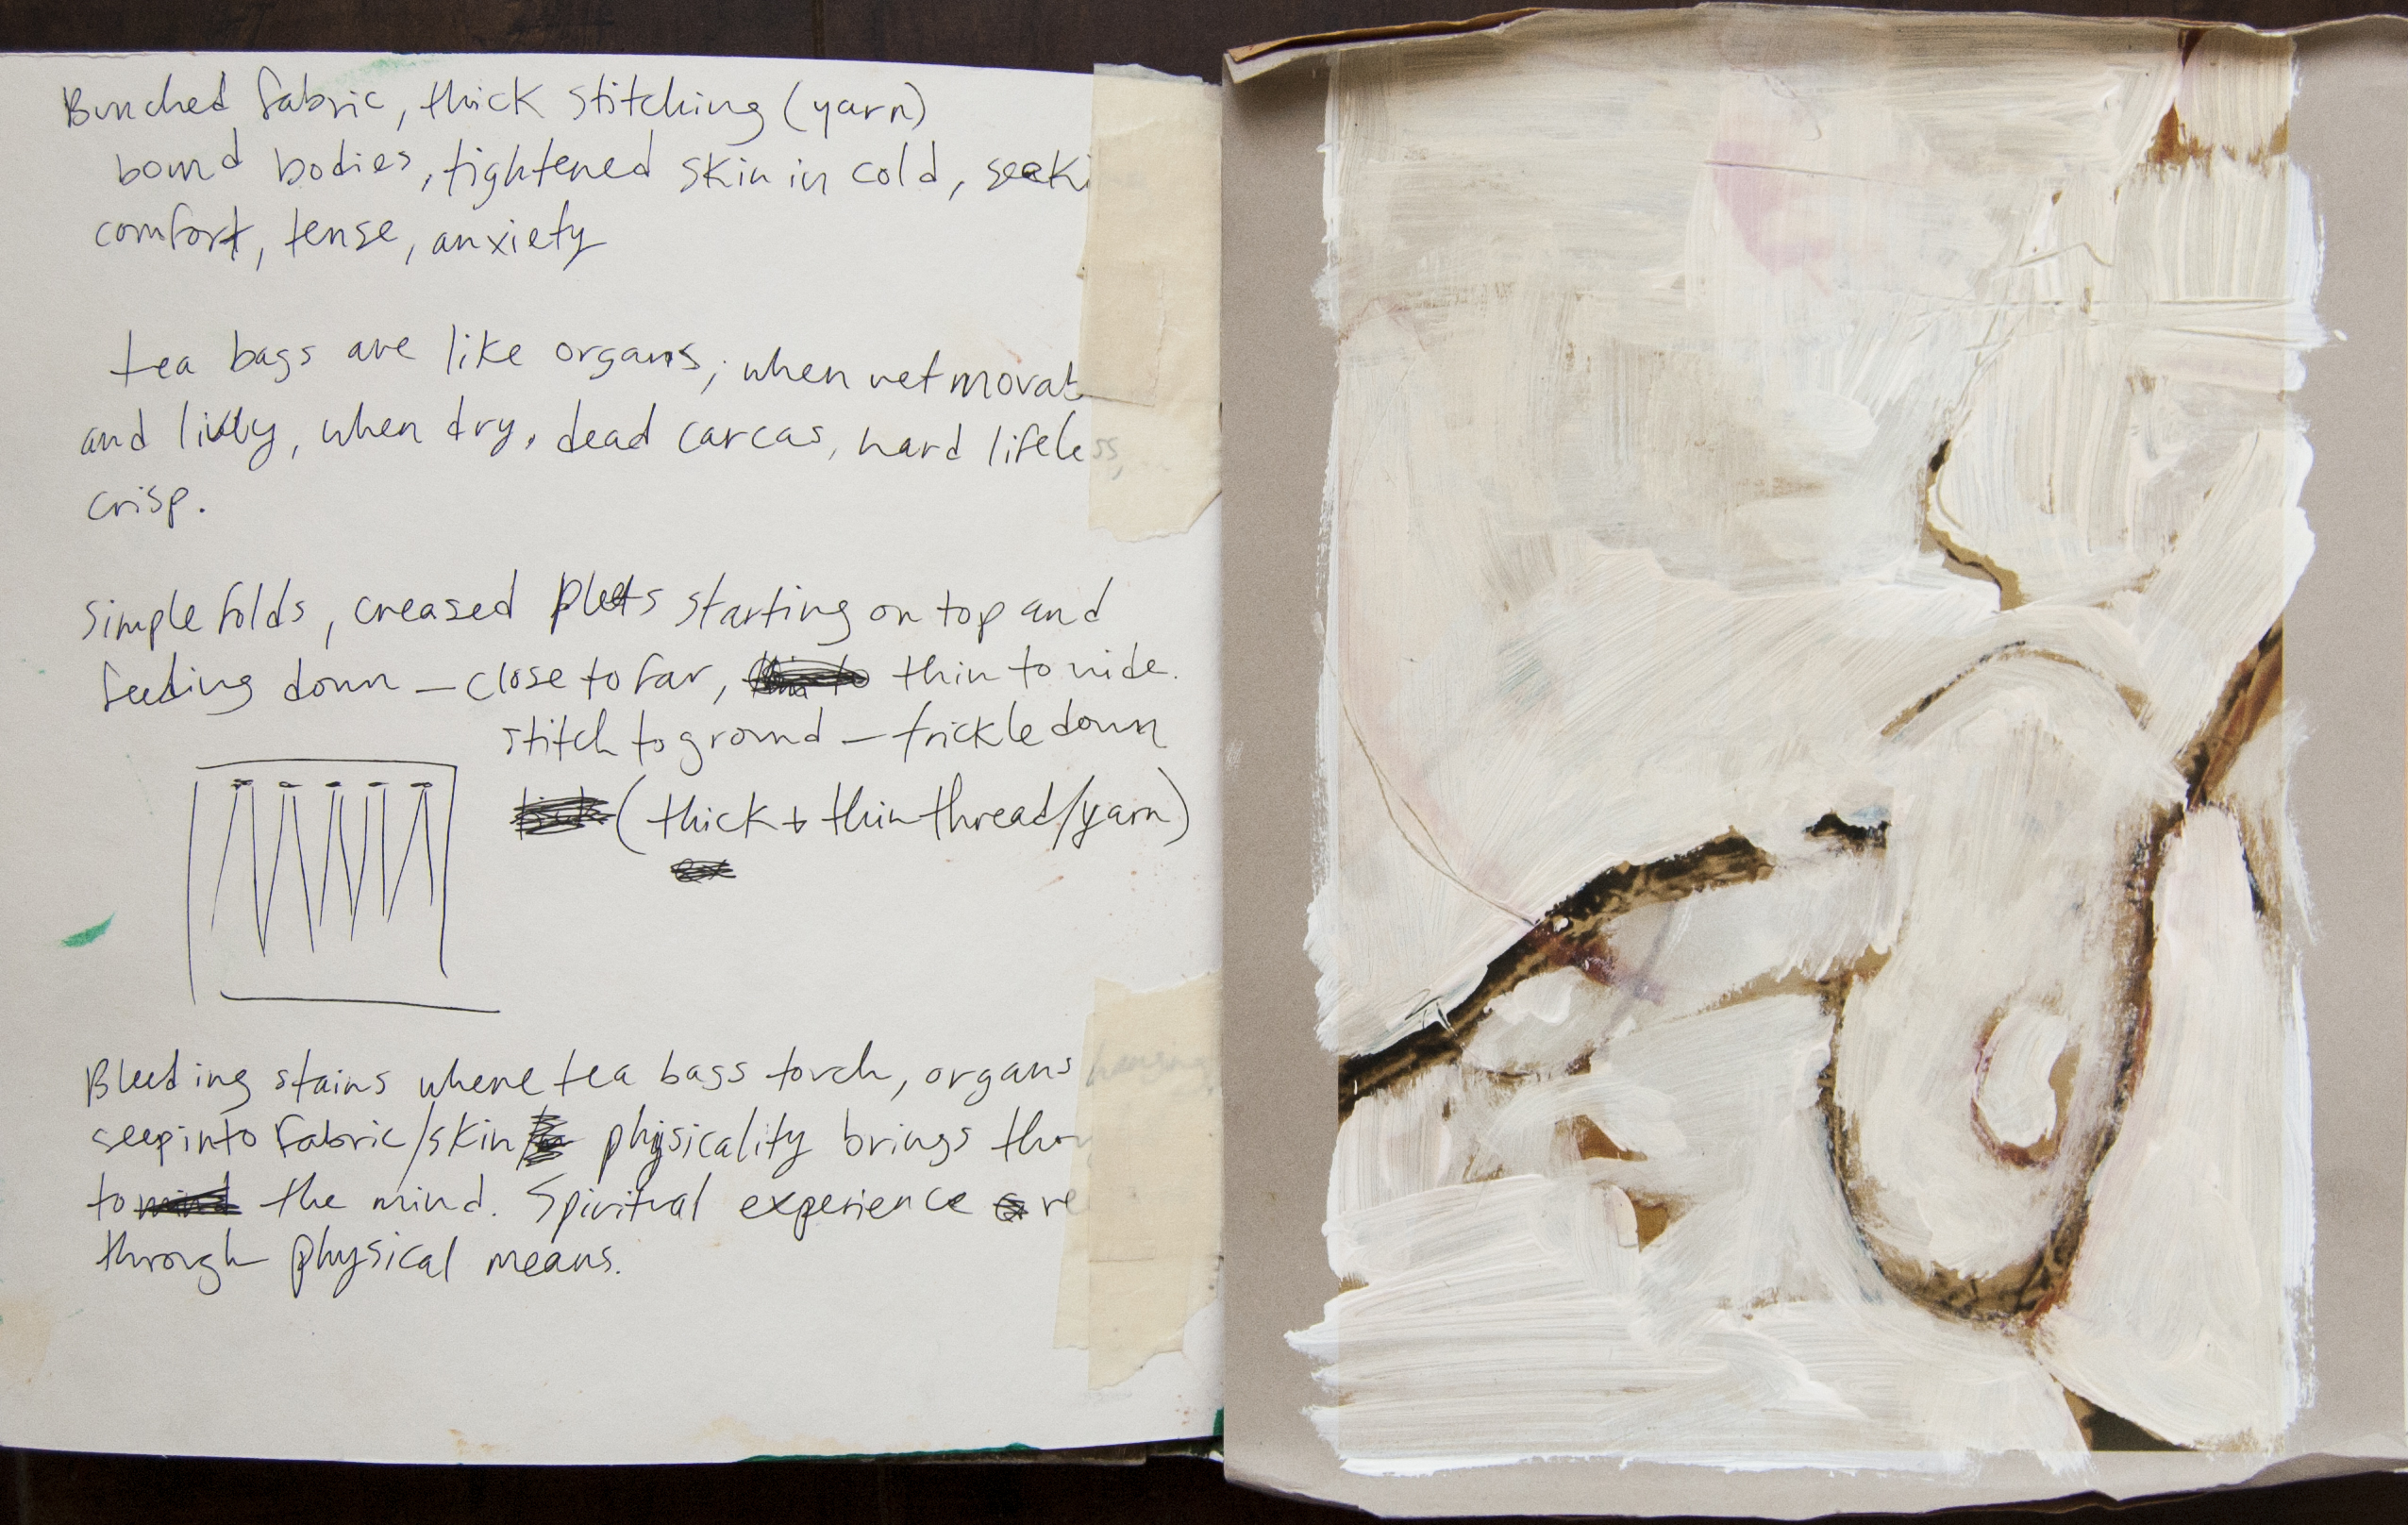 Bunched fabric, thick stitching (yarn)
bound bodies, tightened skin in cold, seeki
comfort, tense, anxiety
tea bags are like organs; when wet movab
and livly, when dry, dead carcas, hard lifeless,
crisp.
Simple folds, creased plets starting on top and
feeding down — close to far, thin to wide.
stitch to ground — trickle down
(thick + thin thread/yarn)
Bleeding stains where tea bags touch, organs
seep into fabric/skin physicality brings thou
to the mind. Spiritual experience re
through physical means.